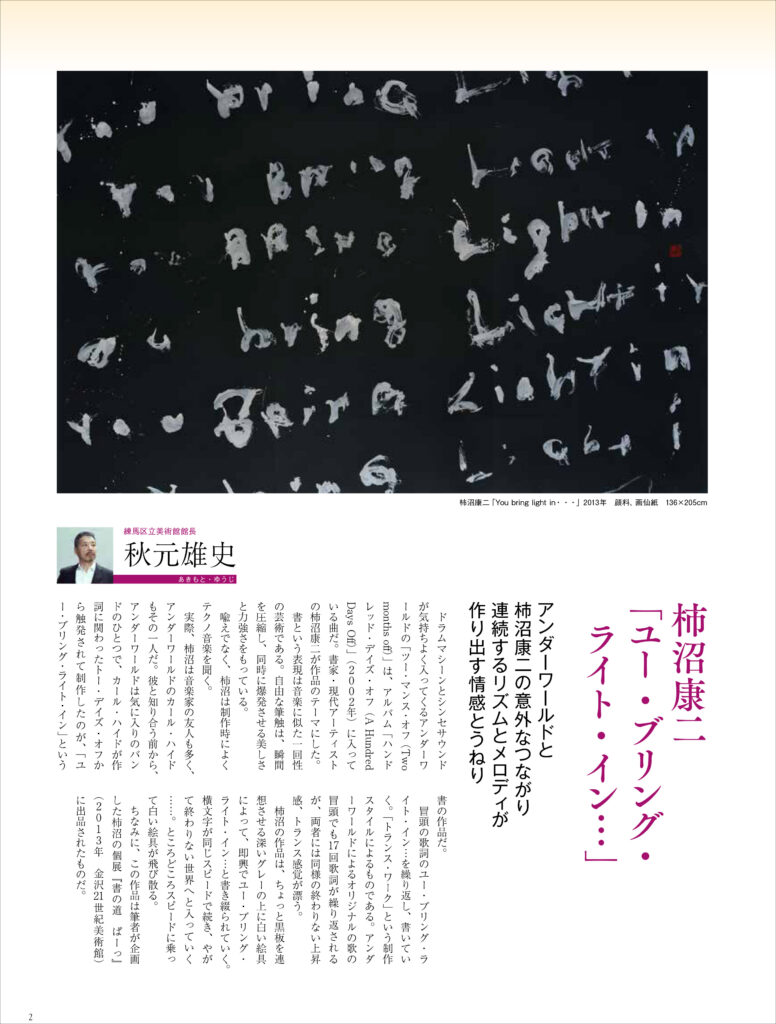 you bring Ligh
You Bring Light in
You Bring Light in
ou bring Light in
You Being Light in
ing Light i
柿沼康二「You bring light in・・・」2013年　顔料、画仙紙　136×205cm
柿沼康二
「ユー・ブリング・
ライト・イン…」
アンダーワールドと
柿沼康二の意外なつながり
連続するリズムとメロディが
作り出す情感とうねり
練馬区立美術館館長
秋元雄史
あきもと・ゆうじ
　ドラムマシーンとシンセサウンド
が気持ちよく入ってくるアンダーワ
ールドの「ツー・マンス・オフ（Two
months off）」は、アルバム「ハンド
レッド・デイズ・オフ（A Hundred
Days Off）」（２００２年）に入って
いる曲だ。書家・現代アーティスト
の柿沼康二が作品のテーマにした。
　書という表現は音楽に似た一回性
の芸術である。自由な筆触は、瞬間
を圧縮し、同時に爆発させる美しさ
と力強さをもっている。
　喩えでなく、柿沼は制作時によく
テクノ音楽を聞く。
　実際、柿沼は音楽家の友人も多く、
アンダーワールドのカール・ハイド
もその一人だ。彼と知り合う前から、
アンダーワールドは気に入りのバン
ドのひとつで、カール・ハイドが作
詞に関わったトー・デイズ・オフか
ら触発されて制作したのが、「ユ
ー・ブリング・ライト・イン」という
書の作品だ。
　冒頭の歌詞のユー・ブリング・ラ
イト・イン…を繰り返し、書いてい
く。「トランス・ワーク」という制作
スタイルによるものである。アンダ
ーワールドによるオリジナルの歌の
冒頭でも17回歌詞が繰り返される
が、両者には同様の終わりない上昇
感、トランス感覚が漂う。
　柿沼の作品は、ちょっと黒板を連
想させる深いグレーの上に白い絵具
によって、即興でユー・ブリング・
ライト・イン…と書き綴られていく。
横文字が同じスピードで続き、やが
て終わりない世界へと入っていく
……。ところどころスピードに乗っ
て白い絵具が飛び散る。
　ちなみに、この作品は筆者が企画
した柿沼の個展『書の道　ぱーっ』
（２０１３年　金沢21世紀美術館）
に出品されたものだ。
2